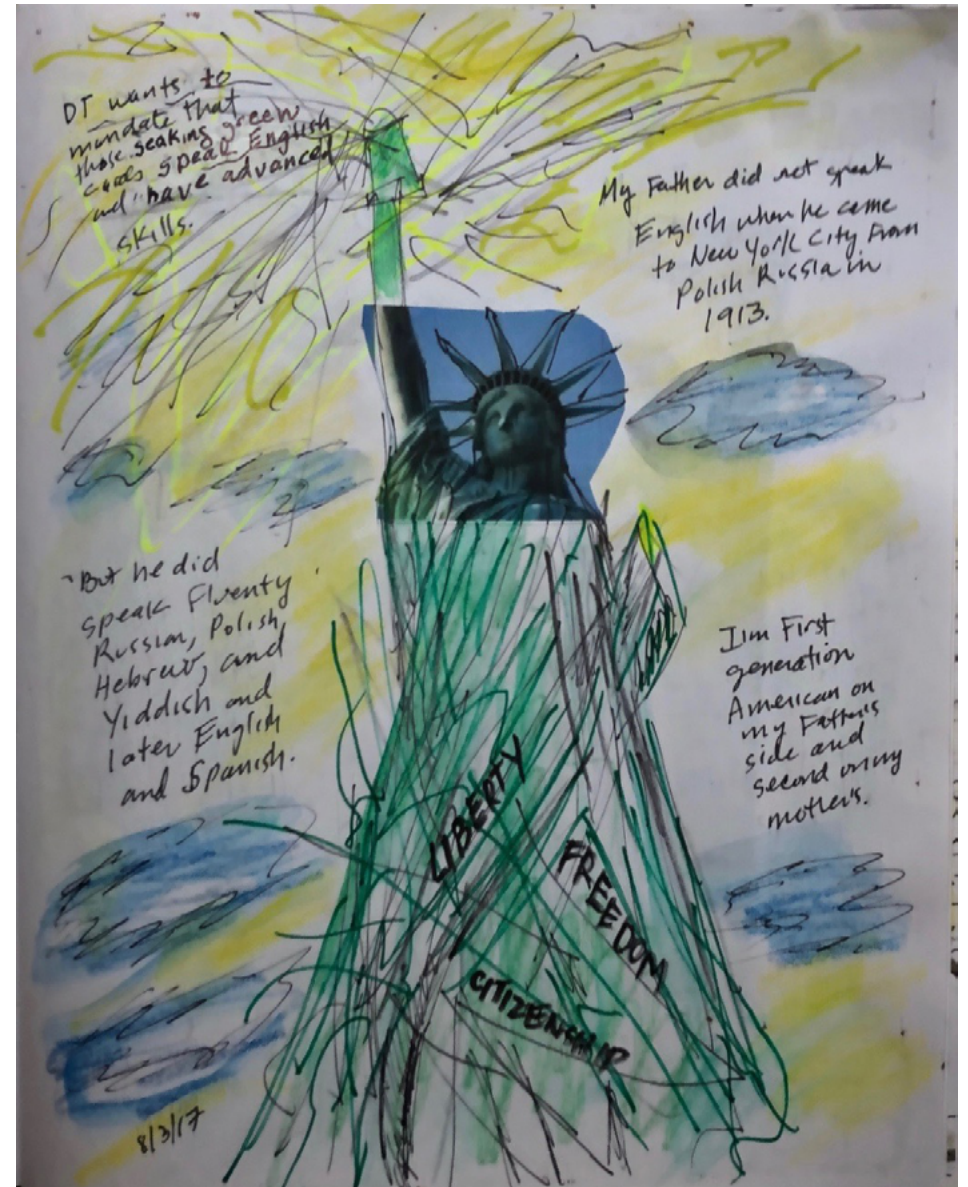 DT wants to
mandate that
those seaking green
cards speak English
and have advanced
skills.
My Father did not speak
English when he came
to New York City from
Polish Russia in
1913.
But he did
speak Fluenty
Russian, Polish,
Hebrew, and
Yiddish and
later English
and Spanish.
I'm First
generation
American on
my Father's
side and
second on my
mother's.
LIBERTY
FREEDOM
CITIZENSHIP
8/3/17